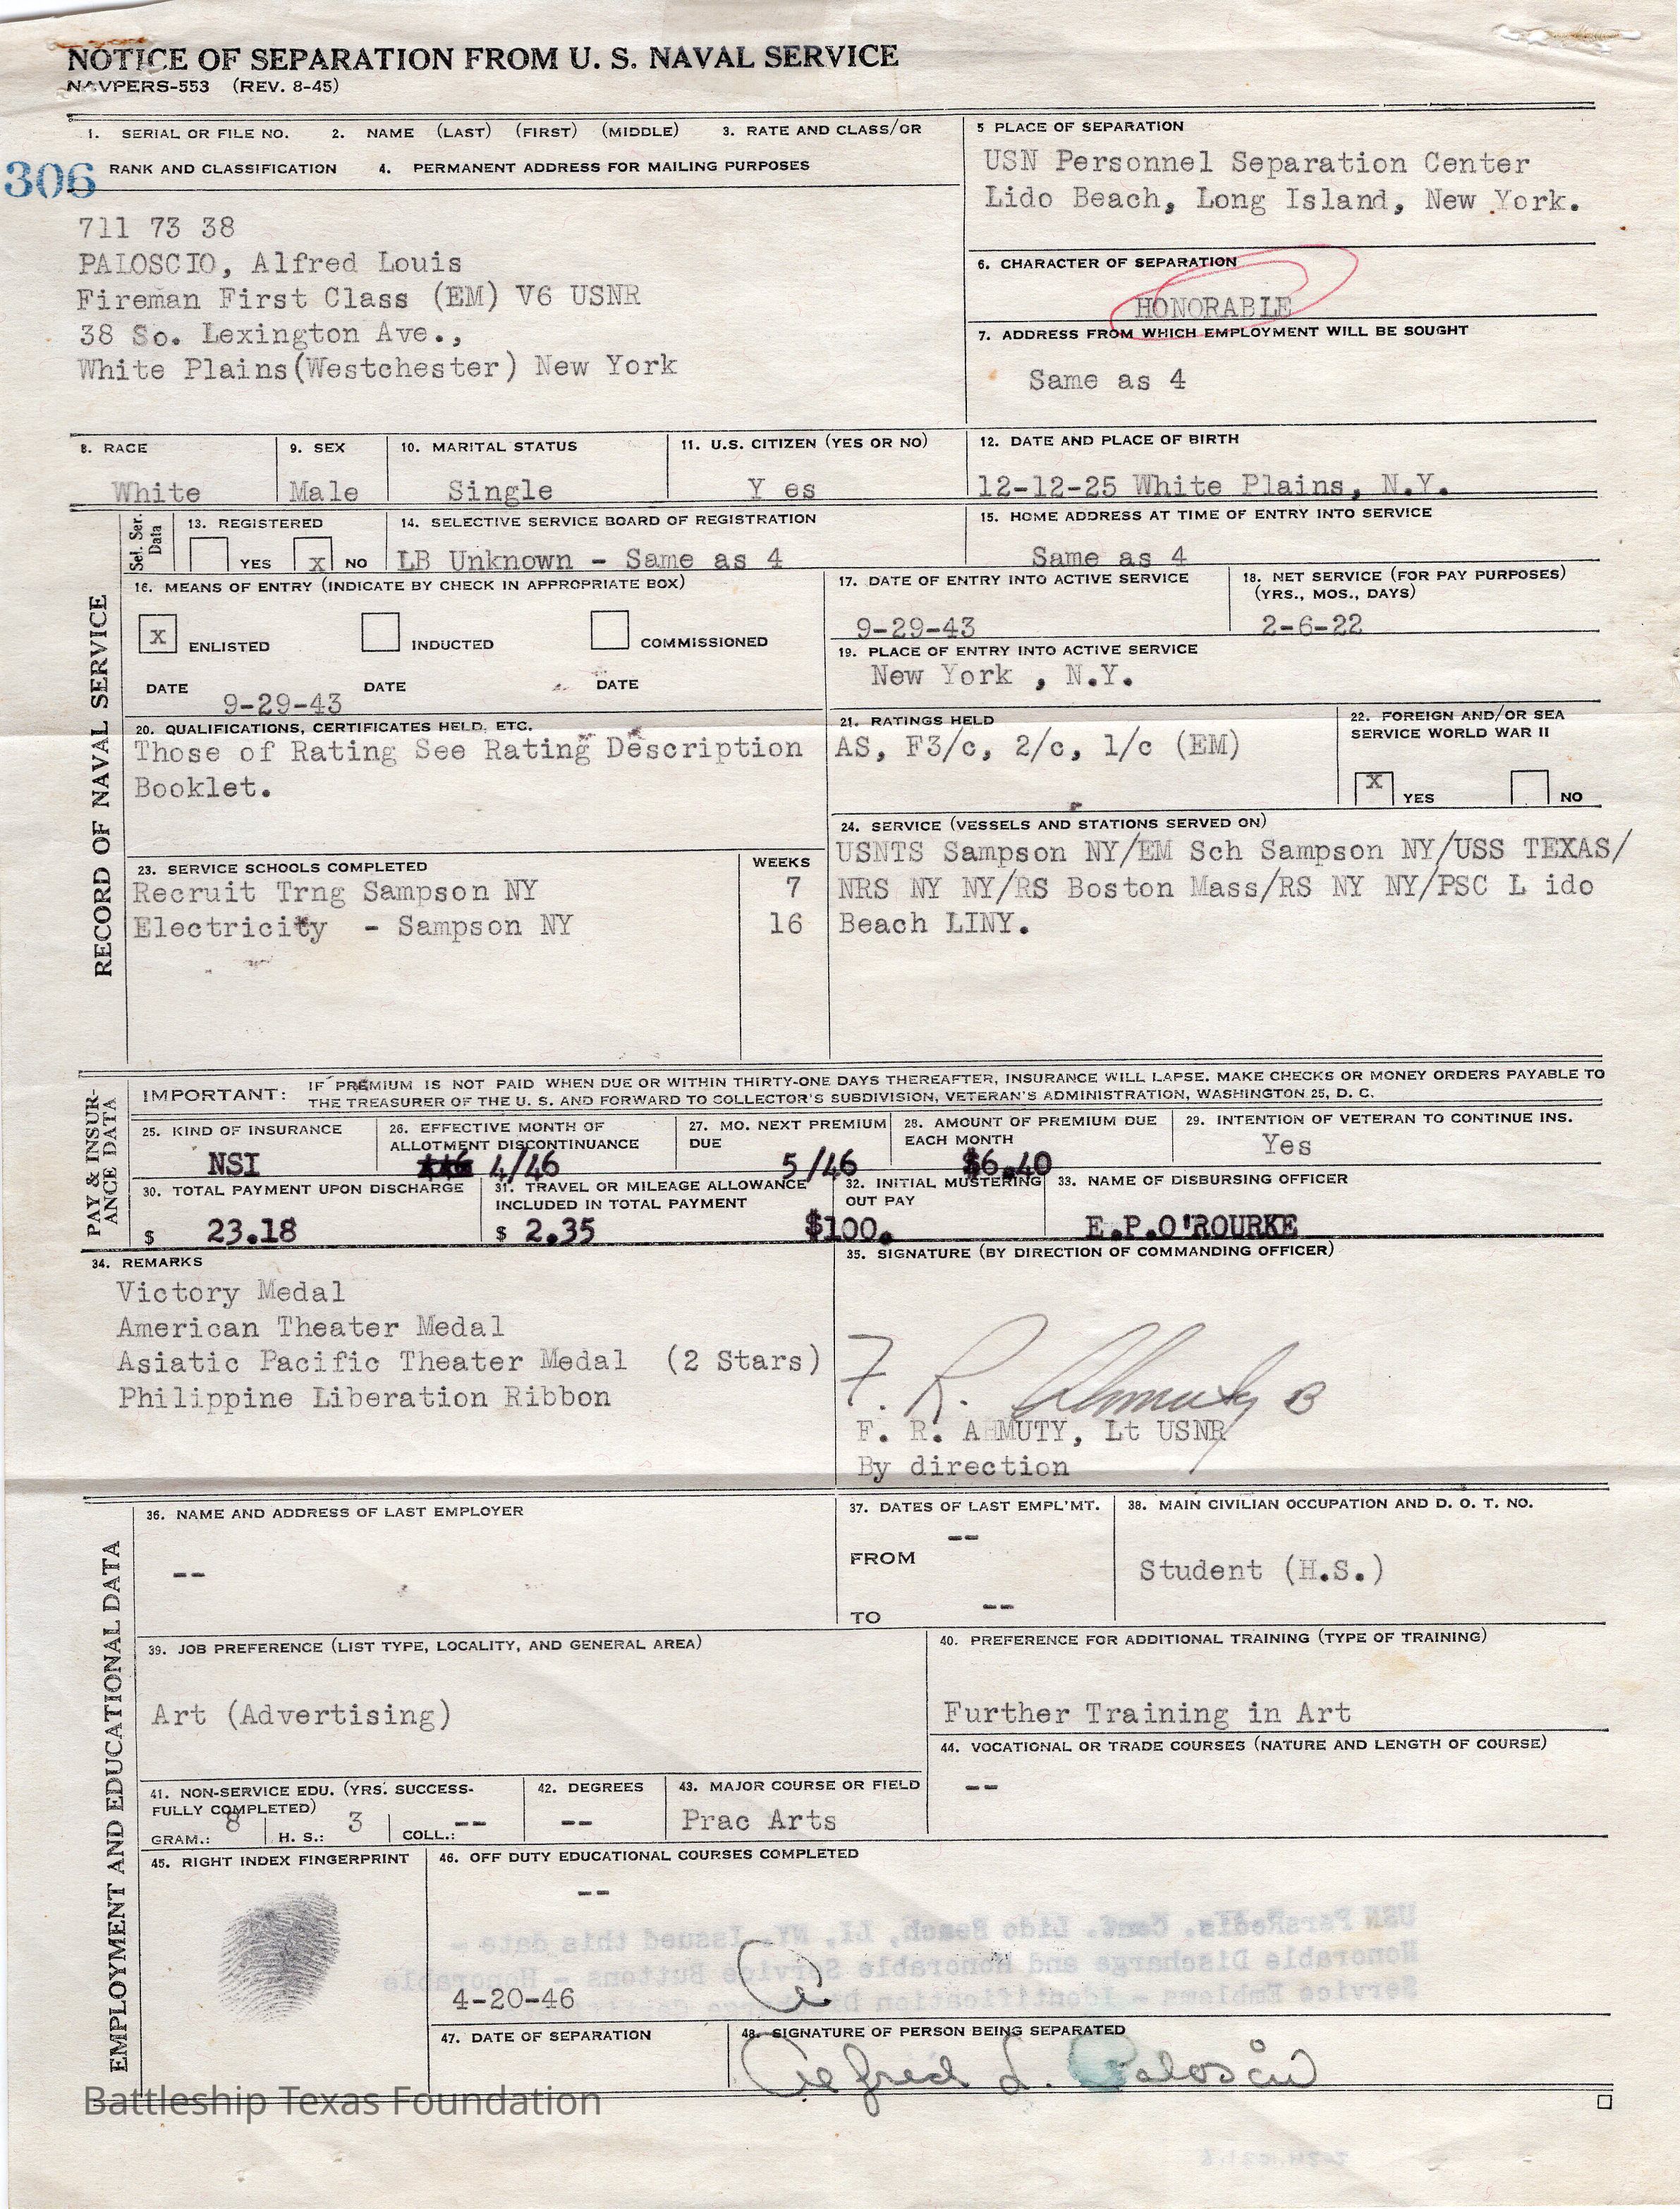 NOTICE OF SEPARATION FROM U. S. NAVAL SERVICE
NAVPERS-553 (REV. 8-45)
1. SERIAL OR FILE NO. 2. NAME (LAST) (FIRST) (MIDDLE) 3. RATE AND CLASS/OR
306 RANK AND CLASSIFICATION 4. PERMANENT ADDRESS FOR MAILING PURPOSES
711 73 38
PALOSCIO, Alfred Louis
Fireman First Class (EM) V6 USNR
38 So. Lexington Ave.,
White Plains(Westchester) New York
5 PLACE OF SEPARATION
USN Personnel Separation Center
Lido Beach, Long Island, New York.
6. CHARACTER OF SEPARATION
HONORABLE
7. ADDRESS FROM WHICH EMPLOYMENT WILL BE SOUGHT
Same as 4
8. RACE
White
9. SEX
Male
10. MARITAL STATUS
Single
11. U.S. CITIZEN (YES OR NO)
Y es
12. DATE AND PLACE OF BIRTH
12-12-25 White Plains, N.Y.
RECORD OF NAVAL SERVICE
Sel. Ser.
Data
13. REGISTERED
YES x NO
14. SELECTIVE SERVICE BOARD OF REGISTRATION
LB Unknown - Same as 4
15. HOME ADDRESS AT TIME OF ENTRY INTO SERVICE
Same as 4
16. MEANS OF ENTRY (INDICATE BY CHECK IN APPROPRIATE BOX)
x ENLISTED INDUCTED COMMISSIONED
DATE DATE DATE
9-29-43
17. DATE OF ENTRY INTO ACTIVE SERVICE
9-29-43
18. NET SERVICE (FOR PAY PURPOSES)
(YRS., MOS., DAYS)
2-6-22
19. PLACE OF ENTRY INTO ACTIVE SERVICE
New York , N.Y.
20. QUALIFICATIONS, CERTIFICATES HELD, ETC.
Those of Rating See Rating Description
Booklet.
21. RATINGS HELD
AS, F3/c, 2/c, 1/c (EM)
22. FOREIGN AND/OR SEA
SERVICE WORLD WAR II
x YES NO
23. SERVICE SCHOOLS COMPLETED WEEKS
Recruit Trng Sampson NY 7
Electricity - Sampson NY 16
24. SERVICE (VESSELS AND STATIONS SERVED ON)
USNTS Sampson NY/EM Sch Sampson NY/USS TEXAS/
NRS NY NY/RS Boston Mass/RS NY NY/PSC L ido
Beach LINY.
PAY & INSUR-
ANCE DATA
IMPORTANT: IF PREMIUM IS NOT PAID WHEN DUE OR WITHIN THIRTY-ONE DAYS THEREAFTER, INSURANCE WILL LAPSE. MAKE CHECKS OR MONEY ORDERS PAYABLE TO
THE TREASURER OF THE U. S. AND FORWARD TO COLLECTOR'S SUBDIVISION, VETERAN'S ADMINISTRATION, WASHINGTON 25, D. C.
25. KIND OF INSURANCE
NSI
26. EFFECTIVE MONTH OF
ALLOTMENT DISCONTINUANCE
4/46
27. MO. NEXT PREMIUM
DUE
5/46
28. AMOUNT OF PREMIUM DUE
EACH MONTH
$6.40
29. INTENTION OF VETERAN TO CONTINUE INS.
Yes
30. TOTAL PAYMENT UPON DISCHARGE
$ 23.18
31. TRAVEL OR MILEAGE ALLOWANCE
INCLUDED IN TOTAL PAYMENT
$ 2.35
32. INITIAL MUSTERING
OUT PAY
$100.
33. NAME OF DISBURSING OFFICER
E.P.O'ROURKE
34. REMARKS
Victory Medal
American Theater Medal
Asiatic Pacific Theater Medal (2 Stars)
Philippine Liberation Ribbon
35. SIGNATURE (BY DIRECTION OF COMMANDING OFFICER)
F. R. Ahmuty B
F. R. AHMUTY, Lt USNR
By direction
EMPLOYMENT AND EDUCATIONAL DATA
36. NAME AND ADDRESS OF LAST EMPLOYER
--
37. DATES OF LAST EMPL'MT.
--
FROM
--
TO
38. MAIN CIVILIAN OCCUPATION AND D. O. T. NO.
Student (H.S.)
39. JOB PREFERENCE (LIST TYPE, LOCALITY, AND GENERAL AREA)
Art (Advertising)
40. PREFERENCE FOR ADDITIONAL TRAINING (TYPE OF TRAINING)
Further Training in Art
41. NON-SERVICE EDU. (YRS. SUCCESS-
FULLY COMPLETED)
GRAM.: 8 H. S.: 3 COLL.: --
42. DEGREES
--
43. MAJOR COURSE OR FIELD
Prac Arts
44. VOCATIONAL OR TRADE COURSES (NATURE AND LENGTH OF COURSE)
--
45. RIGHT INDEX FINGERPRINT
46. OFF DUTY EDUCATIONAL COURSES COMPLETED
--
4-20-46
47. DATE OF SEPARATION
48. SIGNATURE OF PERSON BEING SEPARATED
Alfred L. Paloscio
Battleship Texas Foundation